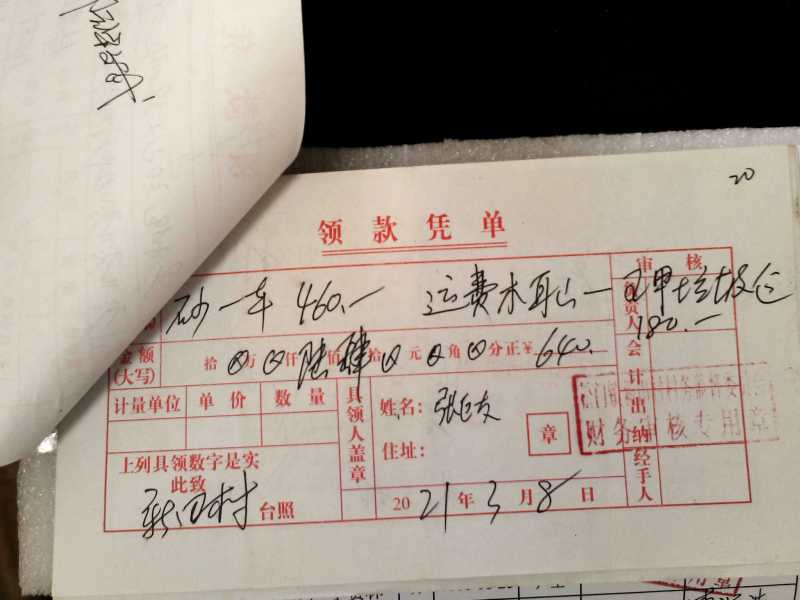 20
领款凭单
审核
砂一车 460.一 运费木耳山一
180.一
负责人
金额
(大写)
拾⊗万⊗仟陆佰肆拾⊗元⊗角⊗分正¥640.
会计
计量单位 单价 数量
具领人盖章
姓名: 张巨友
住址:
章
出纳
财务审核专用章
经手人
上列具领数字是实
此致
新田村 台照
2021年3月8日